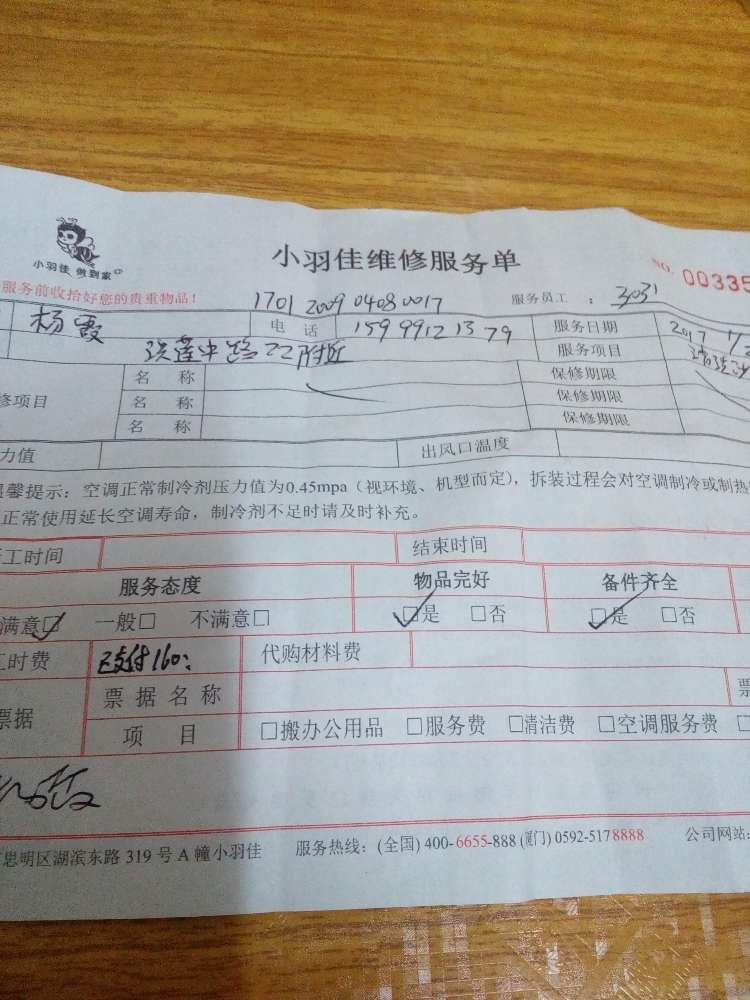 小羽佳 做到家
小羽佳维修服务单
NO. 00335
服务前收拾好您的贵重物品！
1701 2009 0408 0017
服务员工 ： 3031
杨霞 电 话 15999121379 服务日期 2017
莲中路22附近 服务项目
名 称 保修期限
修项目 名 称 保修期限
名 称 保修期限
力值 出风口温度
温馨提示：空调正常制冷剂压力值为0.45mpa（视环境、机型而定），拆装过程会对空调制冷或制热
正常使用延长空调寿命，制冷剂不足时请及时补充。
工时间 结束时间
服务态度 物品完好 备件齐全
满意□ 一般□ 不满意□ □是 □否 □是 □否
工时费 已支付160: 代购材料费
票据 票据名称 票
项 目 □搬办公用品 □服务费 □清洁费 □空调服务费 □
思明区湖滨东路 319 号 A 幢小羽佳 服务热线：(全国) 400-6655-888 (厦门) 0592-5178888 公司网站: